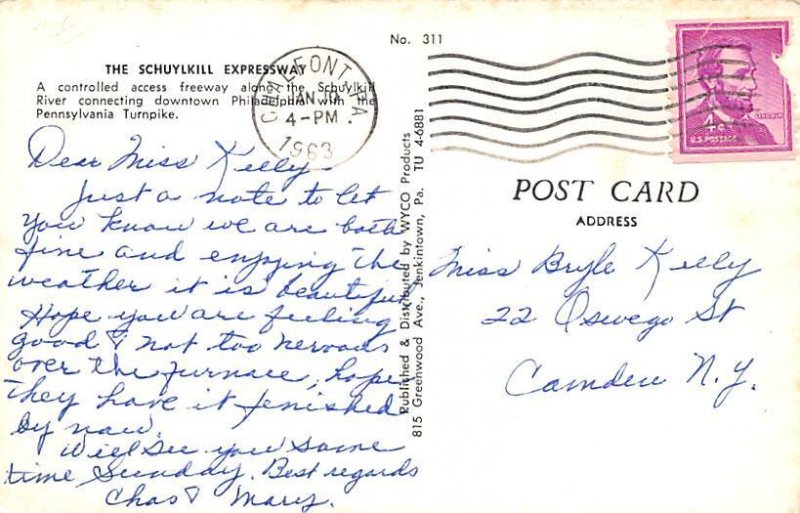 No. 311
THE SCHUYLKILL EXPRESSWAY
A controlled access freeway along the Schuylkill
River connecting downtown Philadelphia with the
Pennsylvania Turnpike.
CHALFONT PA
JAN 10
4-PM
1963
LINCOLN
4¢
U.S. POSTAGE
Dear Miss Kelly
Just a note to let
you know we are both
fine and enjoying the
weather it is beautiful
Hope you are feeling
good & not too nervous
over the furnace, hope
they have it fenished
by now.
Will see you some
time Sunday. Best regards
Chas & Mary.
Published & Distributed by WYCO Products
815 Greenwood Ave., Jenkintown, Pa. TU 4-6881
POST CARD
ADDRESS
Miss Bryle Kelly
22 Oswego St
Camden N.Y.